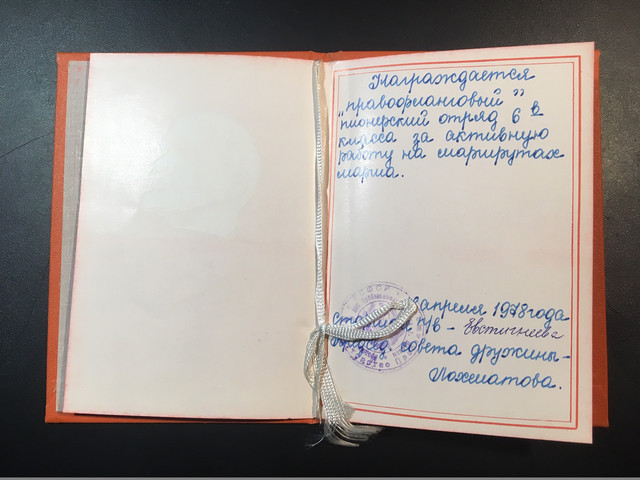 Награждается
"правофланговый"
пионерский отряд 6 в
класса за активную
работу на маршрутах
марша.
апреля 1978 года
п/в - Евстигнеева
совета дружины -
Лохматова.